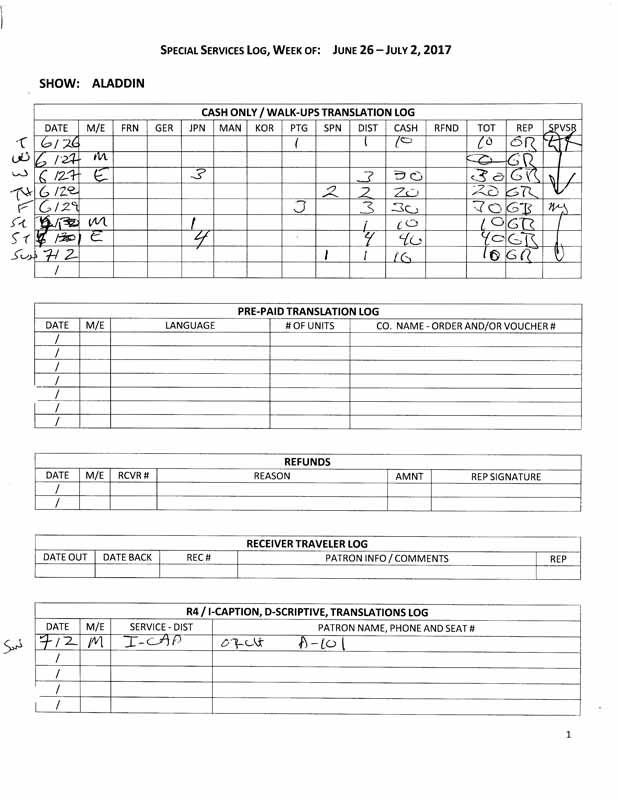 SPECIAL SERVICES LOG, WEEK OF: JUNE 26 – JULY 2, 2017
SHOW: ALADDIN
CASH ONLY / WALK-UPS TRANSLATION LOG
DATE M/E FRN GER JPN MAN KOR PTG SPN DIST CASH RFND TOT REP SPVSR
T 6/26 1 1 10 10 GR
W 6/27 M 0 GR
W 6/27 E 3 3 30 30 GR
TH 6/28 2 2 20 20 GR
F 6/29 3 3 30 30 GR
ST M 1 1 10 10 GR
ST E 4 4 40 40 GR
SUN 7/2 1 1 10 10 GR
/
PRE-PAID TRANSLATION LOG
DATE M/E LANGUAGE # OF UNITS CO. NAME - ORDER AND/OR VOUCHER #
/
/
/
/
/
/
/
REFUNDS
DATE M/E RCVR # REASON AMNT REP SIGNATURE
/
/
RECEIVER TRAVELER LOG
DATE OUT DATE BACK REC # PATRON INFO / COMMENTS REP
R4 / I-CAPTION, D-SCRIPTIVE, TRANSLATIONS LOG
DATE M/E SERVICE - DIST PATRON NAME, PHONE AND SEAT #
SUN 7/2 M I-CAP ORCH A-101
/
/
/
/
1